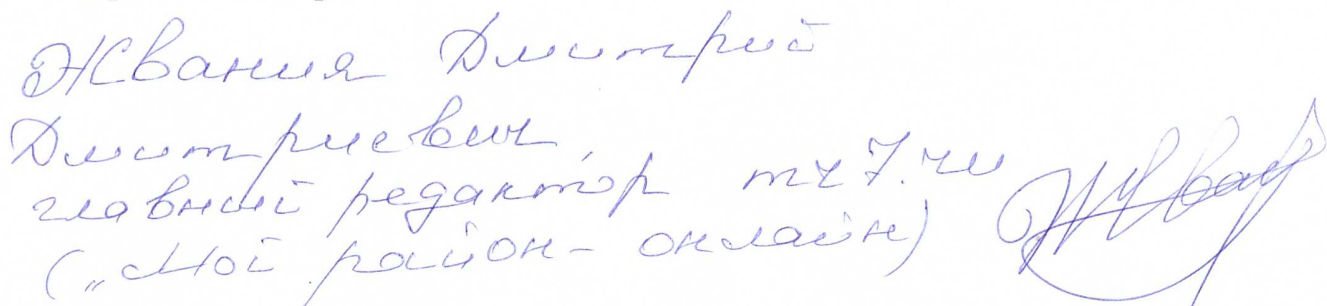 Жвания Дмитрий
Дмитриевич,
главный редактор mr7.ru
(„Мой район - онлайн)